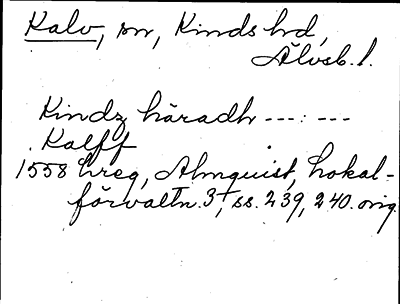 Kalv, sn, Kinds hd,
Älvsb. l.
Kindz häradh ---:---
Kalff
1558 hreg, Almquist, Lokal-
förvaltn. 3, ss. 239, 240. orig.